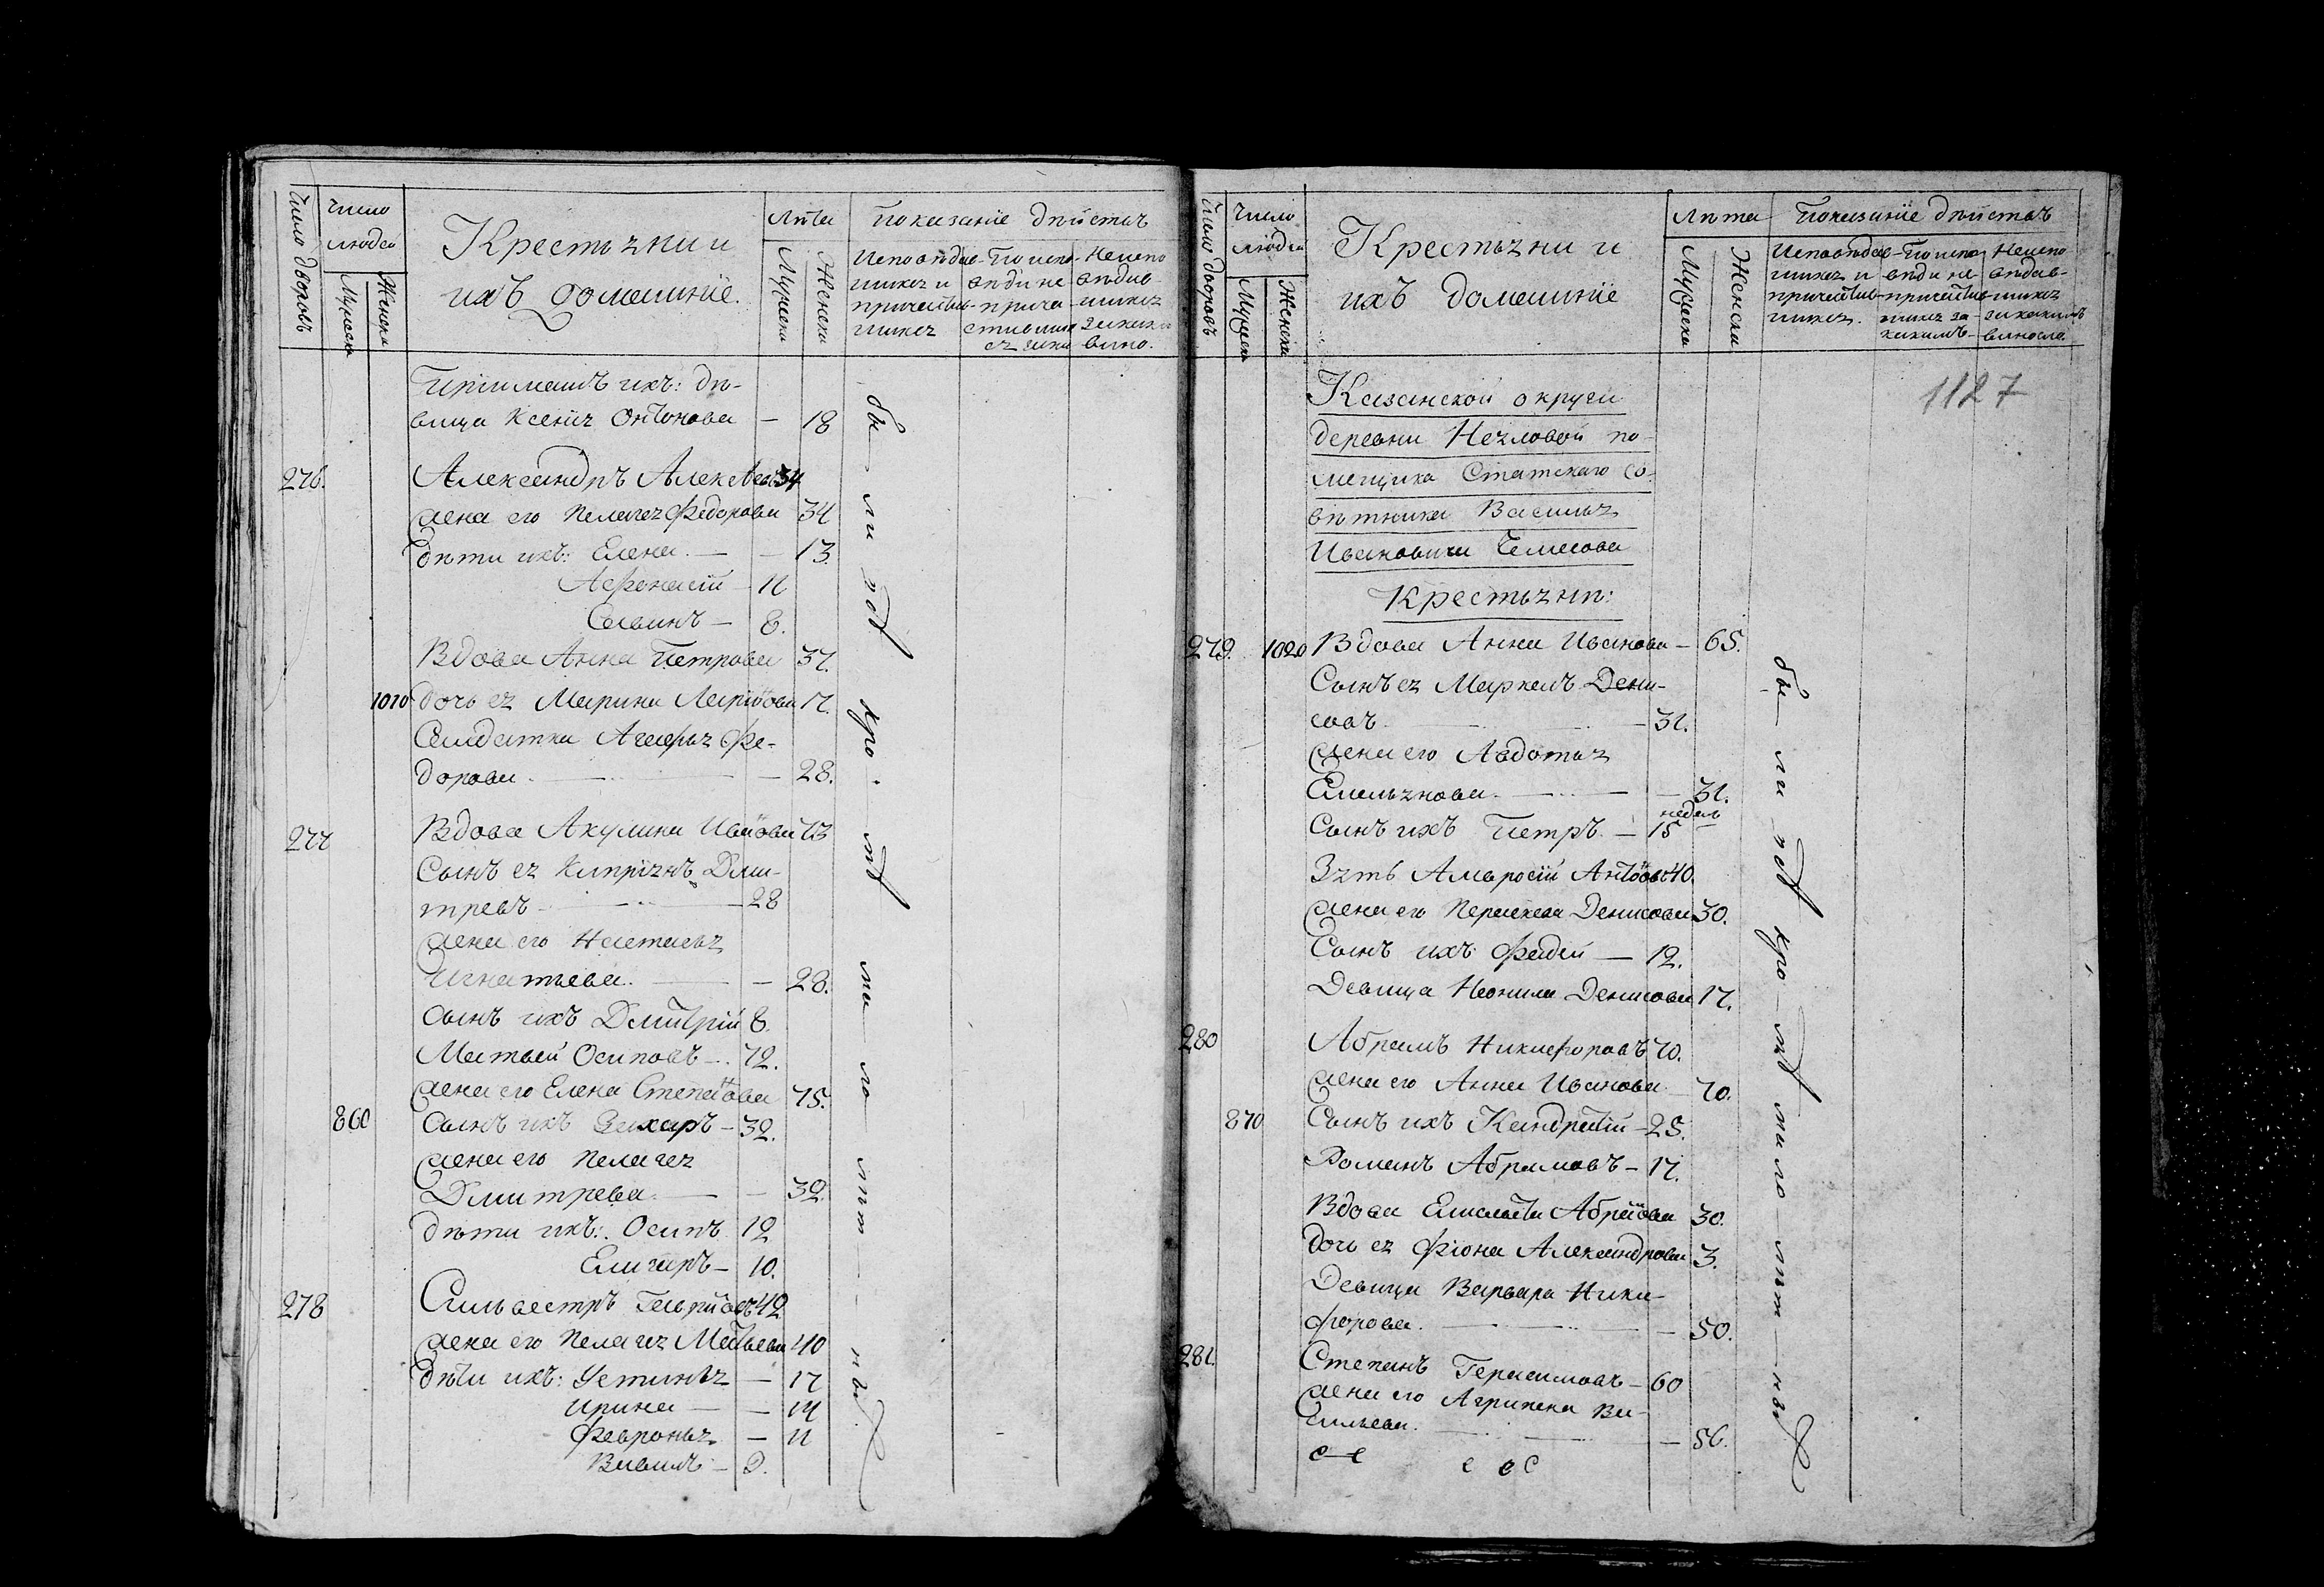 Число дворовъ
Число
людей
Мужеска
Женска
Крестьяни и
ихъ домашніе.
Лѣта
Мужеска
Женска
Показаніе дѣйства
Исповѣдав-
шихся и
причастив-
шихся
По испо-
вѣди не
прича-
стивши
ся
Неиспо
вѣдав-
шихся
вино.
Пріимашъ ихъ: дѣ-
вица Ксенія Онтонова — 18
276. Александръ Алексѣевъ 34
жена его Пелагея Федорова 34
дѣти ихъ: Елена — 13.
Афонасій — 11
Савинъ — 8.
Вдова Анна Петрова 37.
1010 дочь ея Марина Ларионова 17.
Салдатка Агафья Фе-
дорова — 28.
277 Вдова Акулина Иванова 73
Сынъ ея Кипріянъ Дми-
тревъ — 28
жена его Настасья
Игнатьева — 28.
сынъ ихъ Дмитрій 8.
Матвей Осиповъ — 72.
жена его Елена Степанова 75.
860 Сынъ ихъ Захаръ — 32.
жена его Пелагея
Дмитрева — 32.
дѣти ихъ: Осипъ 12
Елизаръ — 10.
278 Сильвестръ Гаврилов 42
жена его Пелагея Матвева 40
Дѣти ихъ: Устинья — 17
Ирина — 14
Февронья — 11
Вавилъ — 2.
бы ли по кро мѣ ма ло лѣт ны
Число дворовъ
Число
людей
Мужеска
Женска
Крестьяни и
ихъ домашніе
Лѣта
Мужеска
Женска
Показаніе дѣйства
Исповѣдав-
шихся и
причастив-
шихся.
По испо
вѣди не
причастив-
шихся за
какимъ-
Неиспо
вѣдав-
шихся
за какимъ
виносло.
1127
Казанской округи
деревни Нечловой по-
мещика Статскаго со-
вѣтника Василья
Ивановича Чемесова
Крестьяни:
279. 1020 Вдова Анна Иванова — 65.
Сынъ ея Маркелъ Дени-
совъ — 31.
жена его Авдотья
Емельянова — 31.
недель
Сынъ ихъ Петръ — 15
Зять Амвросій Антоновъ 40.
жена его Парасковья Денисова 30.
Сынъ ихъ Фадей — 12.
Девица Неонила Денисова 17.
280 Абрамъ Никифоровъ 70.
жена его Анна Иванова 70.
870 Сынъ ихъ Кандратій — 25.
Романъ Абрамовъ — 17.
Вдова Елисавета Абрамова 30.
Дочь ея Фіона Александрова 3.
Девица Варвара Ники-
форова — 50.
281. Степанъ Герасимовъ — 60
жена его Агрипена Ва-
сильева — 56.
бы ли по кро мѣ ма ло лѣт ны